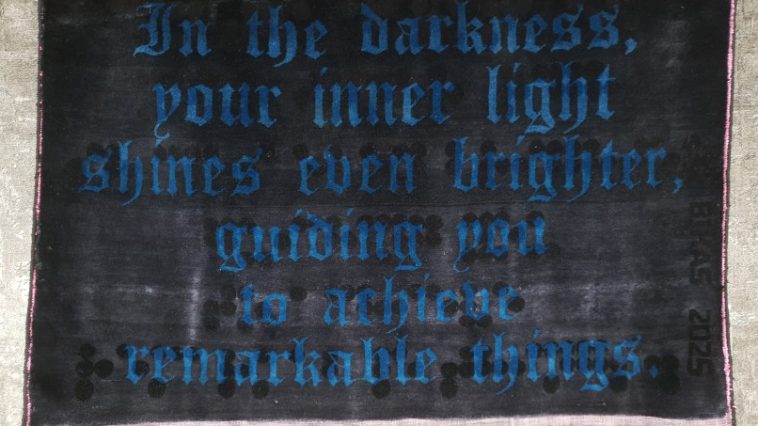 In the darkness,
your inner light
shines even brighter,
guiding you
to achieve
remarkable things.
BIKAS 2025